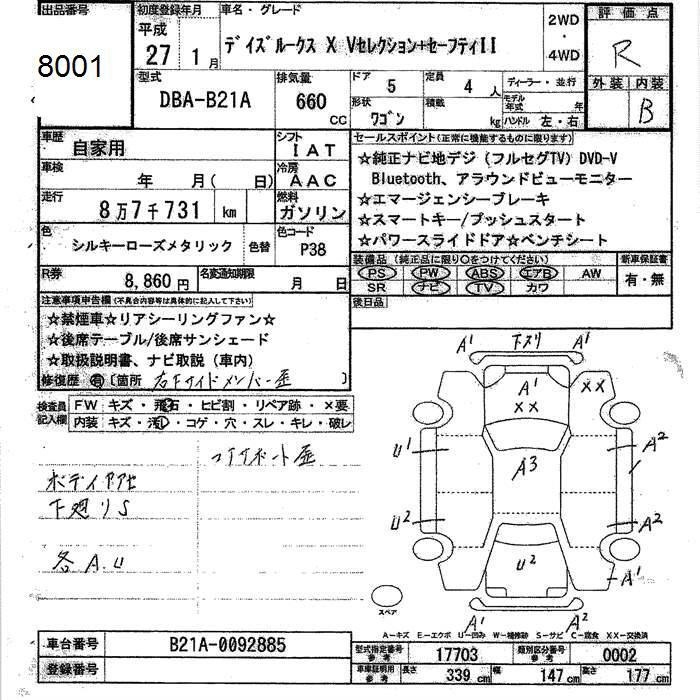 出品番号
8001
初度登録年月
平成
27 1月
車名・グレード
デイズルークス X Vセレクション+セーフティII
2WD
・
4WD
評価点
R
外装 内装
B
型式
DBA-B21A
排気量
660
CC
ドア
5
定員
4 人
形状
ワゴン
積載
kg
ディーラー・並行
モデル年式 年
ハンドル 左・右
車歴
自家用
シフト
IAT
車検
年 月( 日)
冷房
AAC
走行
8万7千731 km
燃料
ガソリン
色
シルキーローズメタリック
色替
色コード
P38
R券
8,860円
名変通知期限
月 日
セールスポイント(正常に機能するものに限ります)
☆純正ナビ地デジ(フルセグTV)DVD-V
Bluetooth、アラウンドビューモニター
☆エマージェンシーブレーキ
☆スマートキー/プッシュスタート
☆パワースライドドア☆ベンチシート
装備品(純正品に限り〇をつけてください)
PS PW ABS エアB AW
SR ナビ TV カワ
新車保証書
有・無
後日品
注意事項申告欄(不具合内容等は具体的に記入して下さい)
☆禁煙車☆リアシーリングファン☆
☆後席テーブル/後席サンシェード
☆取扱説明書、ナビ取説(車内)
修復歴 有 〔箇所 右Fサイドメンバー歪 〕
検査員記入欄
FW キズ・飛石・ヒビ割・リペア跡・×要
内装 キズ・汚れ・コゲ・穴・スレ・キレ・破レ
コアサポート歪
下廻りS
各A.U
A1 下スリ A1
A1
XX
XX
U1
A2
A3
U2
A2
U2
A1
A1
A2
スペア
A-キズ E-エクボ U-凹み W-補修跡 S-サビ C-腐食 XX-交換済
車台番号
B21A-0092885
登録番号
型式指定番号
参考
17703
類別区分番号
参考
0002
車車証明用
参考
長さ 339 cm 幅 147 cm 高さ 177 cm